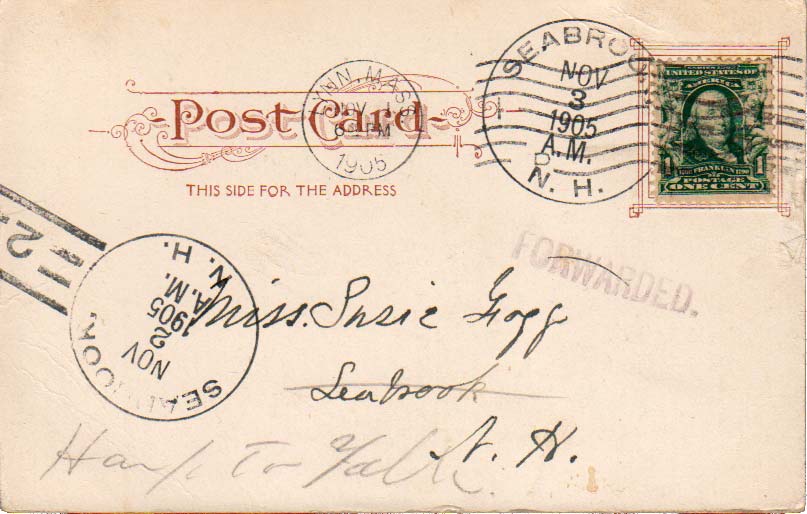 SEABROO
NOV
3
1905
A.M.
D
N. H.
LYNN, MASS
NOV 1
6 PM
1905
UNITED STATES OF
AMERICA
FRANKLIN 1790
1
POSTAGE
ONE CENT
Post Card
THIS SIDE FOR THE ADDRESS
FORWARDED.
2
SEABROOK
NOV
2
1905
A.M.
N. H.
Miss. Susie Fogg
Seabrook
N. H.